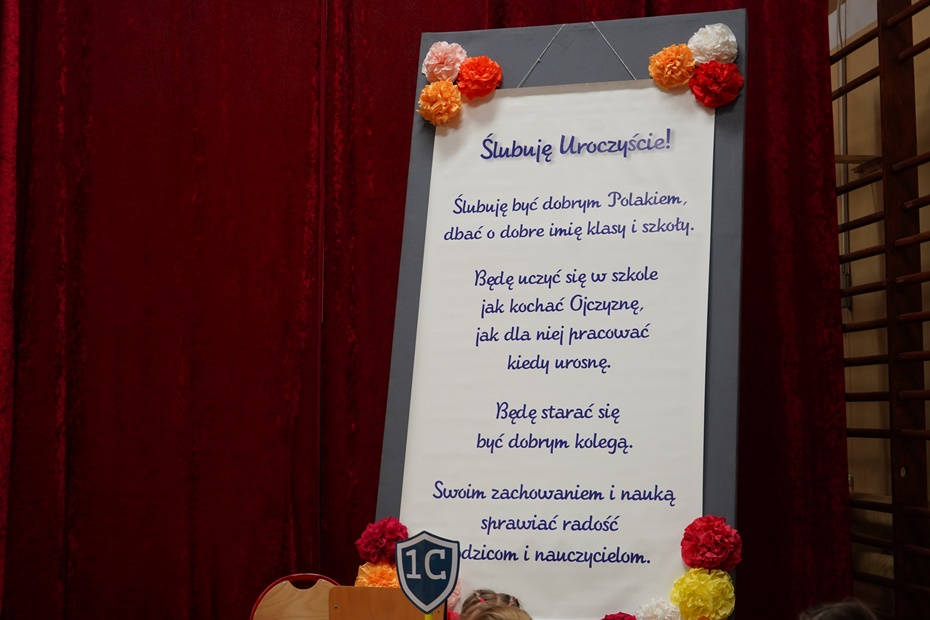 Ślubuję Uroczyście!
Ślubuję być dobrym Polakiem,
dbać o dobre imię klasy i szkoły.
Będę uczyć się w szkole
jak kochać Ojczyznę,
jak dla niej pracować
kiedy urosnę.
Będę starać się
być dobrym kolegą.
Swoim zachowaniem i nauką
sprawiać radość
odzicom i nauczycielom.
1C